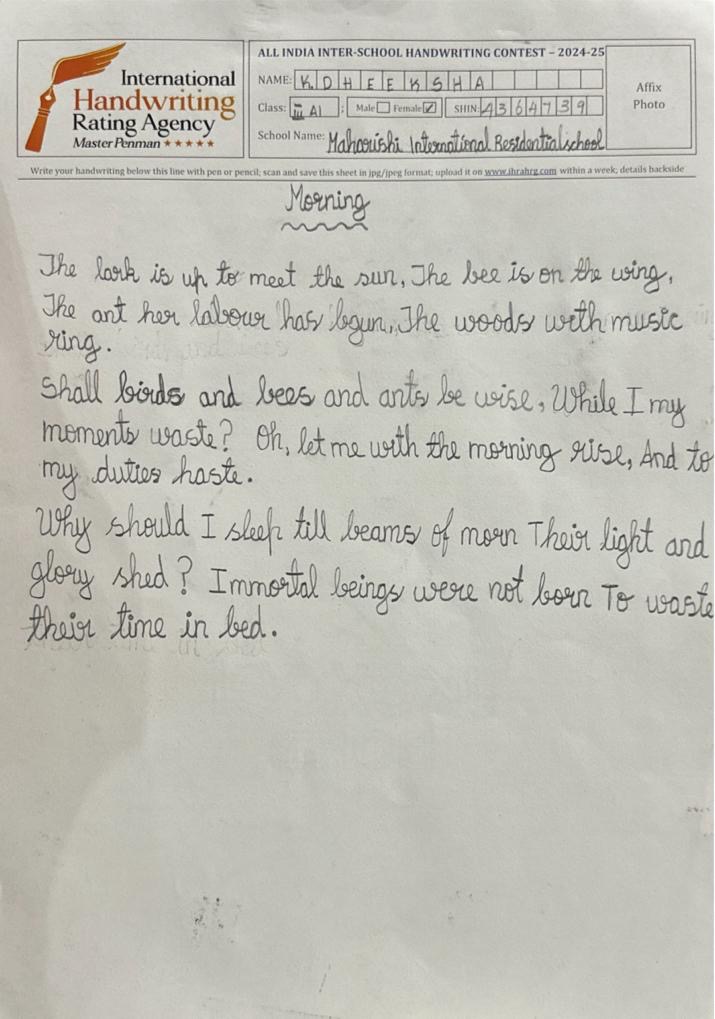 International
Handwriting
Rating Agency
Master Penman ★★★★★
ALL INDIA INTER-SCHOOL HANDWRITING CONTEST – 2024-25
NAME: K. DHEEKSHA
Class: III A1 : Male Female ✓ SHIN: 4364739
School Name: Maharishi International Residential school
Affix
Photo
Write your handwriting below this line with pen or pencil; scan and save this sheet in jpg/jpeg format; upload it on www.ihrahrg.com within a week; details backside
Morning
The lark is up to meet the sun, The bee is on the wing,
The ant her labour has bgun, The woods weth music
ring.
Shall birds and bees and ants be wise, While I my
moments waste? Oh, let me with the morning rise, And to
my duties haste.
Why should I sleep till beams of morn Their light and
glory shed? Immortal beings were not born To waste
their time in bed.